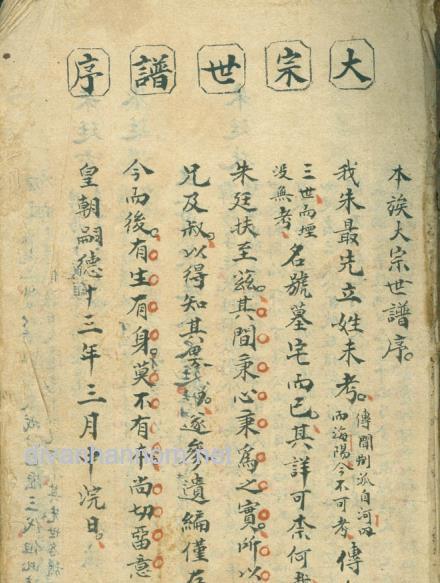 大宗世譜序
本族大宗世譜序
我朱最先立姓未考傳聞荆派自河内而海陽今不可考傳
三世而堙没無考名號墓宅而已其詳可柰何
朱廷扶至茲其間秉心秉為之實所以
兄及叔以得知其逐參遺編僅存
今而後有生有身莫不有尚切留意
皇朝嗣德十三年三月中浣日
divanhannom.net